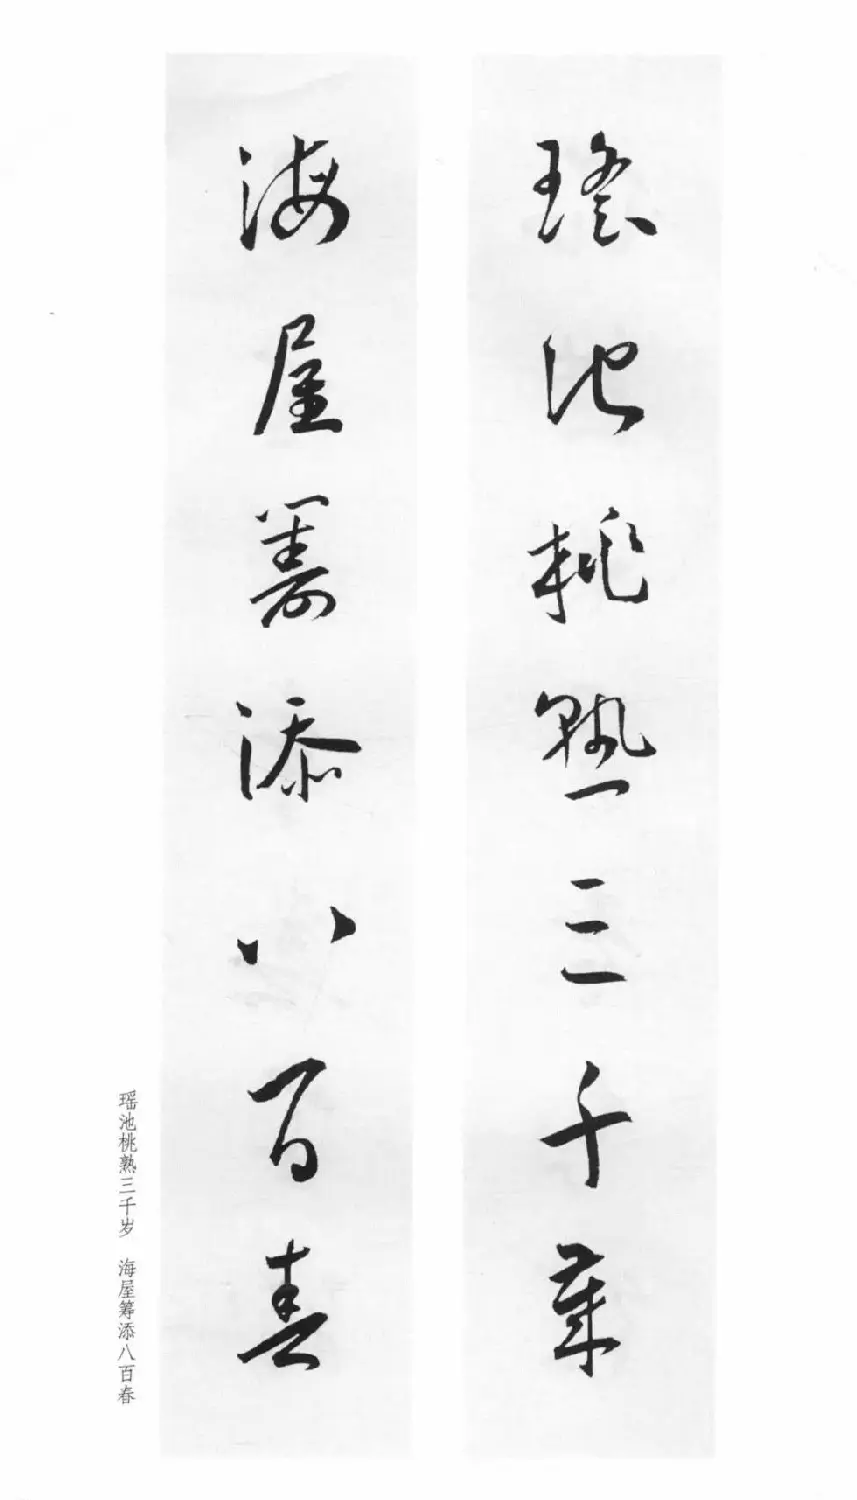 瑶池桃熟三千歲
海屋籌添八百春
瑶池桃熟三千岁 海屋筹添八百春